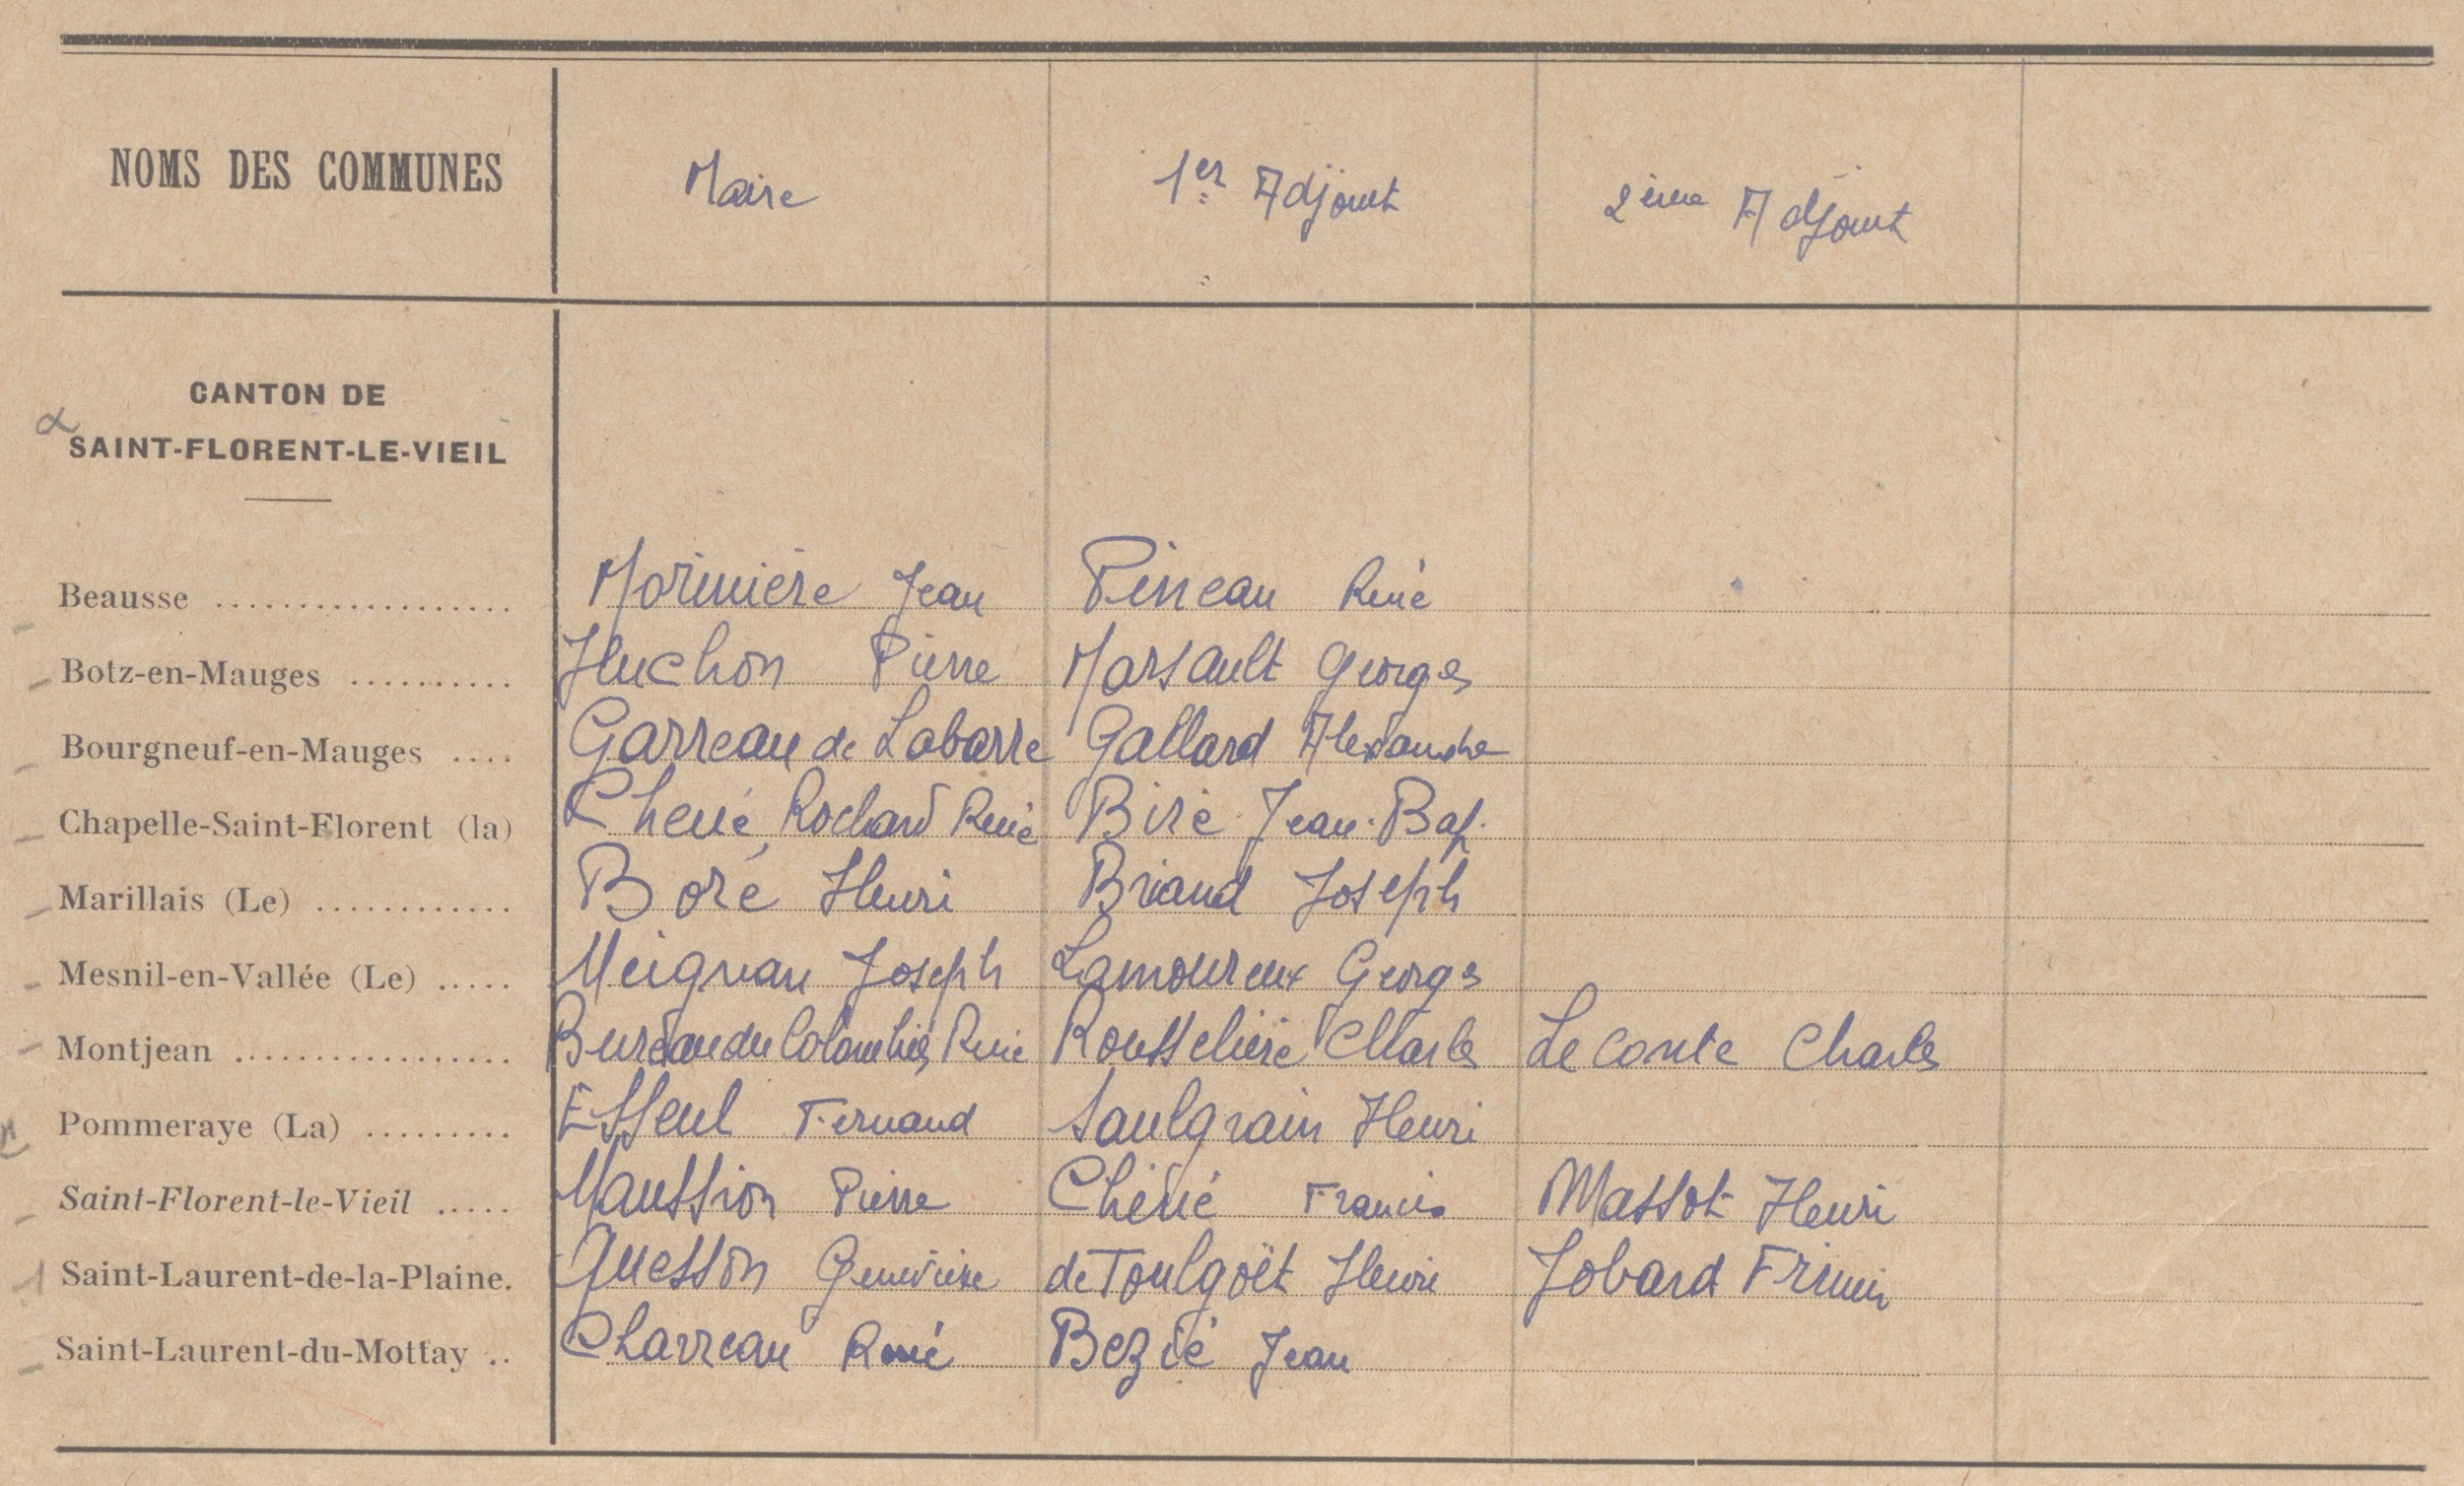 NOMS DES COMMUNES Maire 1er Adjoint 2ème Adjoint
CANTON DE
SAINT-FLORENT-LE-VIEIL
Beausse .................. Morinière Jean Pineau René
Botz-en-Mauges .......... Huchon Pierre Marsault Georges
Bourgneuf-en-Mauges .... Garreau de Labarre Gallard Alexandre
Chapelle-Saint-Florent (la) Chené, Rochard René Biré Jean-Bap.
Marillais (Le) ............ Boré Henri Briand Joseph
Mesnil-en-Vallée (Le) ..... Meignan Joseph Lamoureux Georges
Montjean ................. Bureau du Colombier René Rousselière Charles Leconte Charles
Pommeraye (La) ......... Esseul Fernand Saulgrain Henri
Saint-Florent-le-Vieil ..... Maussion Pierre Chéné Francis Massot Henri
Saint-Laurent-de-la-Plaine. Quesson Geneviève de Toulgoët Henri Jobard Firmin
Saint-Laurent-du-Mottay .. Charreau René Bezié Jean